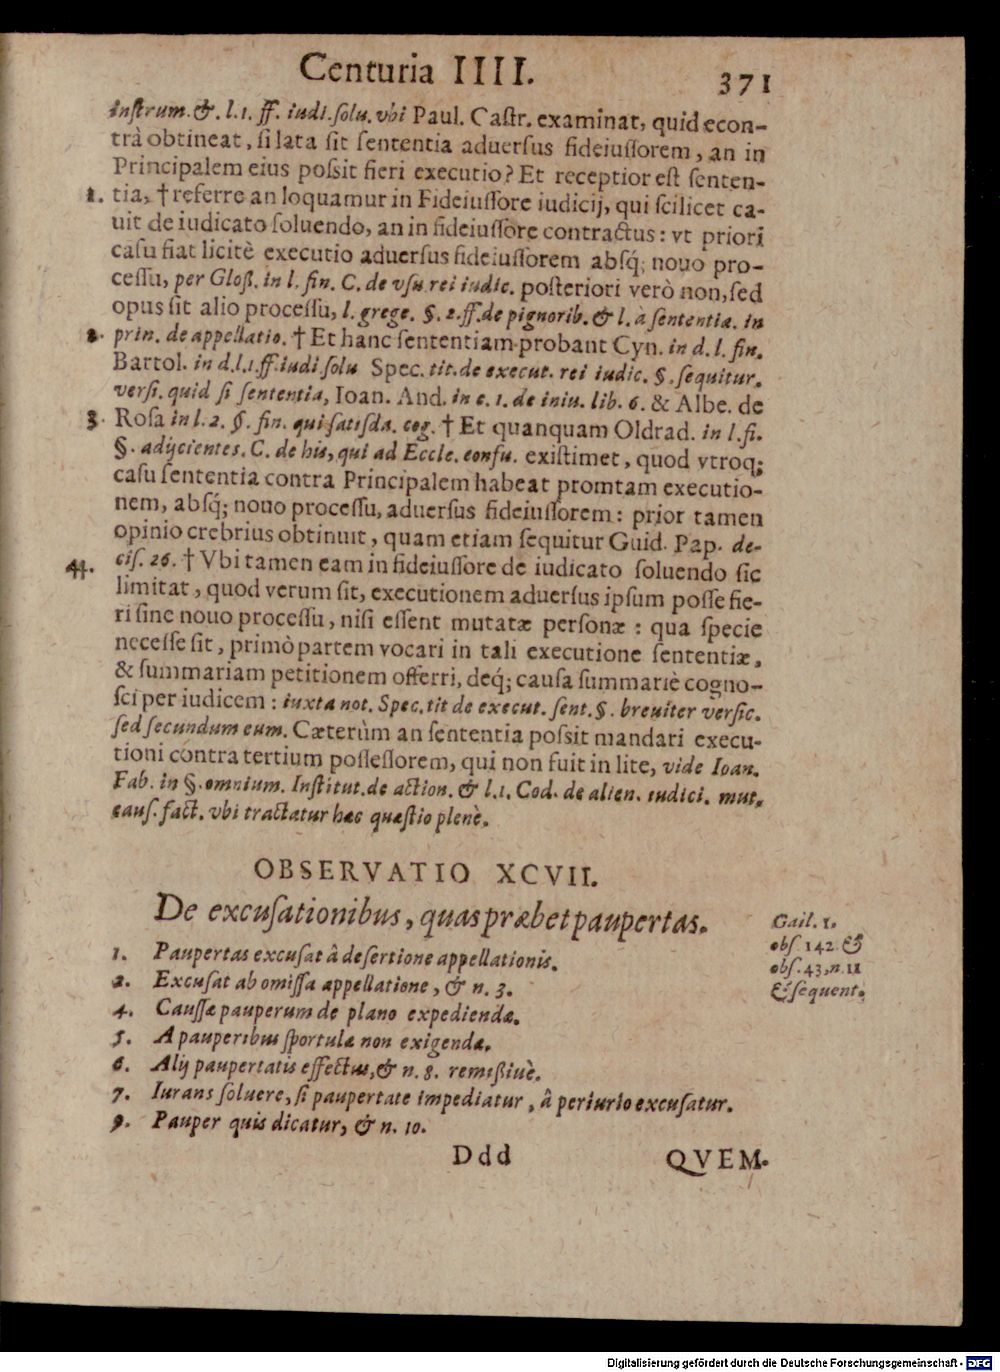 Centuria IIII.
371
inſtrum. &. l. 1. ff. iudi. ſolu. vbi Paul. Caſtr. examinat, quid econ-
trà obtineat, ſi lata ſit ſententia aduerſus fideiuſſorem, an in
Principalem eius poſsit fieri executio? Et receptior eſt ſenten-
1. tia, † referre an loquamur in Fideiuſſore iudicij, qui ſcilicet ca-
uit de iudicato ſoluendo, an in fideiuſſore contractus: vt priori
caſu fiat licitè executio aduerſus fideiuſſorem abſq́; nouo pro-
ceſſu, per Gloß. in l. fin. C. de vſu rei iudic. poſteriori verò non, ſed
opus ſit alio proceſſu, l. grege. §. 2. ff. de pignorib. & l. à ſententia. in
2. prin. de appellatio. † Et hanc ſententiam probant Cyn. in d. l. fin.
Bartol. in d. l. 1. ff. iudi ſolu Spec. tit. de execut. rei iudic. §. ſequitur.
verſi. quid ſi ſententia, Ioan. And. in c. 1. de iniu. lib. 6. & Albe. de
3. Roſa in l. 2. §. fin. qui ſatiſda. cog. † Et quanquam Oldrad. in l. fi.
§. adijcientes. C. de his, qui ad Eccle. confu. exiſtimet, quod vtroq;
caſu ſententia contra Principalem habeat promtam executio-
nem, abſq́; nouo proceſſu, aduerſus fideiuſſorem: prior tamen
opinio crebrius obtinuit, quam etiam ſequitur Guid. Pap. de-
4. ciſ. 26. † Vbi tamen eam in fideiuſſore de iudicato ſoluendo ſic
limitat, quod verum ſit, executionem aduerſus ipſum poſſe fie-
ri ſine nouo proceſſu, niſi eſſent mutatæ perſonæ: qua ſpecie
neceſſe ſit, primò partem vocari in tali executione ſententiæ,
& ſummariam petitionem offerri, deq́; cauſa ſummariè cogno-
ſci per iudicem: iuxta not. Spec. tit de execut. ſent. §. breuiter verſic.
ſed ſecundum eum. Cæterùm an ſententia poſsit mandari execu-
tioni contra tertium poſſeſſorem, qui non fuit in lite, vide Ioan.
Fab. in §. omnium. Inſtitut. de action. & l. 1. Cod. de alien. iudici. mut.
cauſ. fact. vbi tractatur hæc quæſtio plenè.
OBSERVATIO XCVII.
De excuſationibus, quas præbet paupertas.
Gail. 1.
obſ. 142 &
obſ. 43, n. 11
& ſequent.
1. Paupertas excuſat â deſertione appellationis.
2. Excuſat ab omiſſa appellatione, & n. 3.
4. Cauſſæ pauperum de plano expediendæ.
5. A pauperibus ſportulæ non exigendæ.
6. Alij paupertatis effectus, & n. 8. remißiuè.
7. Iurans ſoluere, ſi paupertate impediatur, â periurio excuſatur.
9. Pauper quis dicatur, & n. 10.
Ddd
QVEM.
Digitalisierung gefördert durch die Deutsche Forschungsgemeinschaft - DFG